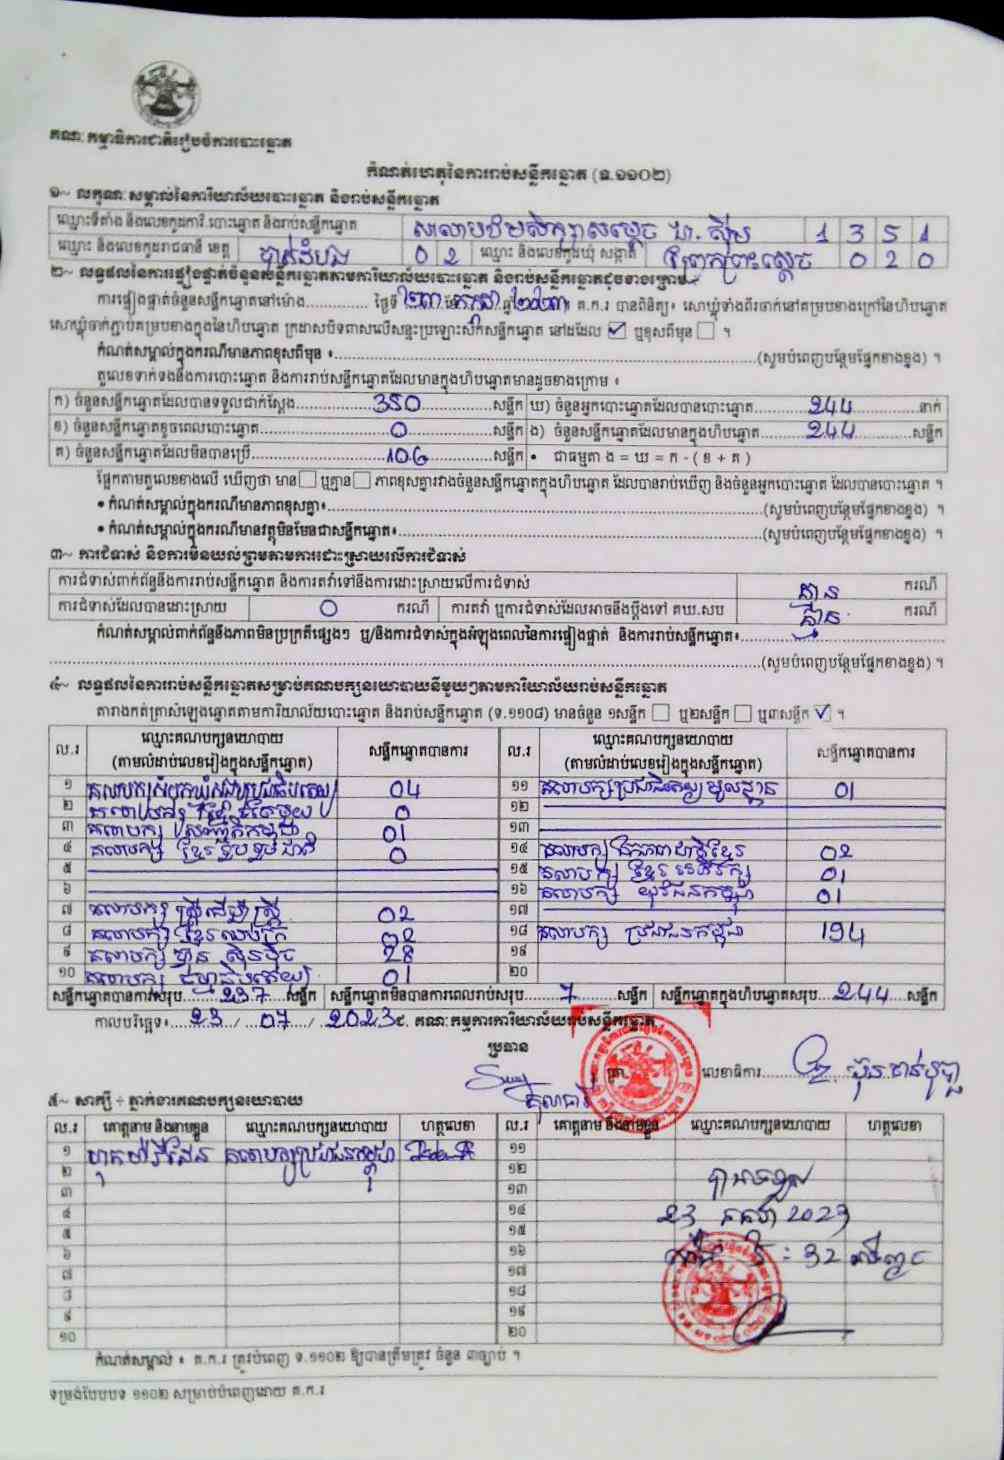 គណៈកម្មាធិការជាតិរៀបចំការបោះឆ្នោត
កំណត់ហេតុនៃការរាប់សន្លឹកឆ្នោត (ទ.១១០២)
១~ លក្ខណៈសម្គាល់នៃការិយាល័យបោះឆ្នោត និងរាប់សន្លឹកឆ្នោត
ឈ្មោះទីតាំង និងលេខកូដការិ.បោះឆ្នោត និងរាប់សន្លឹកឆ្នោត 1 3 5 1
ឈ្មោះ និងលេខកូដរាជធានី ខេត្ត បាត់ដំបង 0 2 ឈ្មោះ និងលេខកូដឃុំ សង្កាត់ ព្រែកព្រះស្ដេច 0 2 0
២~ លទ្ធផលនៃការផ្ទៀងផ្ទាត់ចំនួនសន្លឹកឆ្នោតតាមការិយាល័យបោះឆ្នោត និងរាប់សន្លឹកឆ្នោតដូចខាងក្រោម~
ការផ្ទៀងផ្ទាត់ចំនួនសន្លឹកឆ្នោតនៅម៉ោង............ ថ្ងៃទី ២៣ ខែ កក្កដា ឆ្នាំ ២០២៣ គ.ក.រ បានពិនិត្យ៖ សោឃ្មុំទាំងពីរចាក់នៅគម្របខាងក្រៅនៃហិបឆ្នោត
សោឃ្មុំចាក់ភ្ជាប់គម្របខាងក្នុងនៃហិបឆ្នោត ក្រដាសបិទពាសលើសន្ទះប្រឡោះស៊កសន្លឹកឆ្នោត នៅដដែល ☑ ឬខុសពីមុន ☐ ។
កំណត់សម្គាល់ក្នុងករណីមានភាពខុសពីមុន ៖............(សូមបំពេញបន្ថែមផ្នែកខាងខ្នង) ។
តួលេខទាក់ទងនឹងការបោះឆ្នោត និងការរាប់សន្លឹកឆ្នោតដែលមានក្នុងហិបឆ្នោតមានដូចខាងក្រោម ៖
ក) ចំនួនសន្លឹកឆ្នោតដែលបានទទួលជាក់ស្ដែង 350 សន្លឹក ឃ) ចំនួនអ្នកបោះឆ្នោតដែលបានបោះឆ្នោត 244 នាក់
ខ) ចំនួនសន្លឹកឆ្នោតខូចពេលបោះឆ្នោត 0 សន្លឹក ង) ចំនួនសន្លឹកឆ្នោតដែលមានក្នុងហិបឆ្នោត 244 សន្លឹក
គ) ចំនួនសន្លឹកឆ្នោតដែលមិនបានប្រើ 106 សន្លឹក • ជាធម្មតា ង = ឃ = ក - ( ខ + គ )
ផ្អែកតាមតួលេខខាងលើ ឃើញថា មាន ☐ ឬគ្មាន ☐ ភាពខុសគ្នារវាងចំនួនសន្លឹកឆ្នោតក្នុងហិបឆ្នោត ដែលបានរាប់ឃើញ និងចំនួនអ្នកបោះឆ្នោត ដែលបានបោះឆ្នោត ។
• កំណត់សម្គាល់ក្នុងករណីមានភាពខុសគ្នា៖............(សូមបំពេញបន្ថែមផ្នែកខាងខ្នង) ។
• កំណត់សម្គាល់ក្នុងករណីមានវត្ថុមិនមែនជាសន្លឹកឆ្នោត៖............(សូមបំពេញបន្ថែមផ្នែកខាងខ្នង) ។
៣~ ការជំទាស់ និងការមិនយល់ព្រមតាមការដោះស្រាយលើការជំទាស់
ការជំទាស់ពាក់ព័ន្ធនឹងការរាប់សន្លឹកឆ្នោត និងការតវ៉ាទៅនឹងការដោះស្រាយលើការជំទាស់ គ្មាន ករណី
ការជំទាស់ដែលបានដោះស្រាយ 0 ករណី ការតវ៉ា ឬការជំទាស់ដែលអាចនឹងប្ដឹងទៅ គឃ.សប គ្មាន ករណី
កំណត់សម្គាល់ពាក់ព័ន្ធនឹងភាពមិនប្រក្រតីផ្សេងៗ ឬ/និងការជំទាស់ក្នុងអំឡុងពេលនៃការផ្ទៀងផ្ទាត់ និងការរាប់សន្លឹកឆ្នោត៖............
............(សូមបំពេញបន្ថែមផ្នែកខាងខ្នង) ។
៤~ លទ្ធផលនៃការរាប់សន្លឹកឆ្នោតសម្រាប់គណបក្សនយោបាយនីមួយៗតាមការិយាល័យរាប់សន្លឹកឆ្នោត
តារាងកត់ត្រាសំឡេងឆ្នោតតាមការិយាល័យបោះឆ្នោត និងរាប់សន្លឹកឆ្នោត (ទ.១១០៨) មានចំនួន ១សន្លឹក ☐ ឬ២សន្លឹក ☐ ឬ៣សន្លឹក ☑ ។
ល.រ ឈ្មោះគណបក្សនយោបាយ (តាមលំដាប់លេខរៀងក្នុងសន្លឹកឆ្នោត) សន្លឹកឆ្នោតបានការ ល.រ ឈ្មោះគណបក្សនយោបាយ (តាមលំដាប់លេខរៀងក្នុងសន្លឹកឆ្នោត) សន្លឹកឆ្នោតបានការ
១ គណបក្សសំបុកឃ្មុំសង្គមប្រជាធិបតេយ្យ 04 ១១ គណបក្សប្រជាធិបតេយ្យមូលដ្ឋាន 01
២ គណបក្សខ្មែរតែមួយ 0 ១២
៣ គណបក្ស សញ្ជាតិកម្ពុជា 01 ១៣
៤ គណបក្ស ខ្មែររួបរួមជាតិ 0 ១៤ គណបក្ស ឯកភាពជាតិខ្មែរ 02
៥ ១៥ គណបក្ស ខ្មែរអភិរក្ស 01
៦ ១៦ គណបក្ស យុវជនកម្ពុជា 01
៧ គណបក្ស ស្ត្រីដើម្បីស្ត្រី 02 ១៧
៨ គណបក្ស ខ្មែរឈប់ក្រ 02 ១៨ គណបក្ស ប្រជាជនកម្ពុជា 194
៩ គណបក្ស ហ្វ៊ុនស៊ិនប៉ិច 28 ១៩
១០ គណបក្ស ធម្មាធិបតេយ្យ 01 ២០
សន្លឹកឆ្នោតបានការសរុប 237 សន្លឹក សន្លឹកឆ្នោតមិនបានការពេលរាប់សរុប 7 សន្លឹក សន្លឹកឆ្នោតក្នុងហិបឆ្នោតសរុប 244 សន្លឹក
កាលបរិច្ឆេទ៖ 23 / 07 / 2023 ជ. គណៈកម្មការការិយាល័យរាប់សន្លឹកឆ្នោត
ប្រធាន
លេខាធិការ
៥~ សាក្សី ÷ ភ្នាក់ងារគណបក្សនយោបាយ
ល.រ គោត្តនាម និងនាមខ្លួន ឈ្មោះគណបក្សនយោបាយ ហត្ថលេខា ល.រ គោត្តនាម និងនាមខ្លួន ឈ្មោះគណបក្សនយោបាយ ហត្ថលេខា
១ គណបក្សប្រជាជនកម្ពុជា ១១
២ ១២
៣ ១៣
៤ ១៤ 23 កក្កដា 2023
៥ ១៥
៦ ១៦ ម៉ោង 5 : 32
៧ ១៧
៨ ១៨
៩ ១៩
១០ ២០
កំណត់សម្គាល់ ៖ គ.ក.រ ត្រូវបំពេញ ទ.១១០២ ឱ្យបានត្រឹមត្រូវ ចំនួន ៣ច្បាប់ ។
ទម្រង់បែបបទ ១១០២ សម្រាប់បំពេញដោយ គ.ក.រ